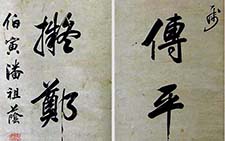 傳平
擬鄭
伯寅潘祖蔭